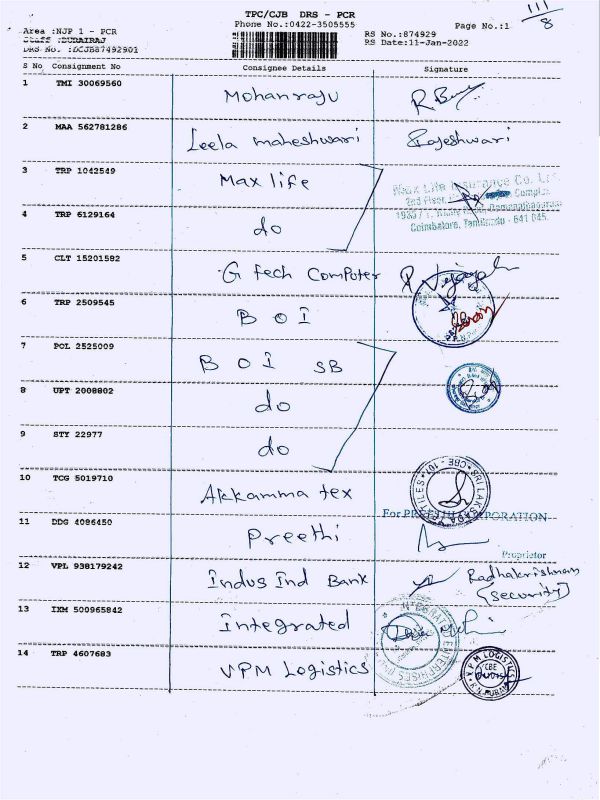 TPC/CJB DRS - PCR
Phone No.:0422-3505555
Page No.:1
111/8
Area :NJP 1 - PCR
RS No.:874929
Staff :DURAIRAJ
RS Date:11-Jan-2022
DRS No. :DCJB87492901
S No Consignment No Consignee Details Signature
1 TMI 30069560 Mohanraju R.
2 MAA 562781286 Leela maheshwari Rajeshwari
3 TRP 1042549 Max life
Max Life Insurance Co. Lt
2nd Floor, Complex
4 TRP 6129164 do
Coimbatore, Tamilnadu - 641 045.
5 CLT 15201582 G tech Computer
6 TRP 2509545 B O I
7 POL 2525009 B O I SB
8 UPT 2008802 do
9 STY 22977 do
10 TCG 5019710 Akkamma tex
SRI LAKSADA TEXTILES * CBE - 107 *
For PREETHI CORPORATION
11 DDG 4086450 Preethi
Proprietor
12 VPL 938179242 Indus Ind Bank Radhakrishnan
(Security)
13 IXM 500965842 Integrated
INTEGRATED ENTERPRISES
14 TRP 4607683 VPM Logistics
VPM LOGISTICS
CBE